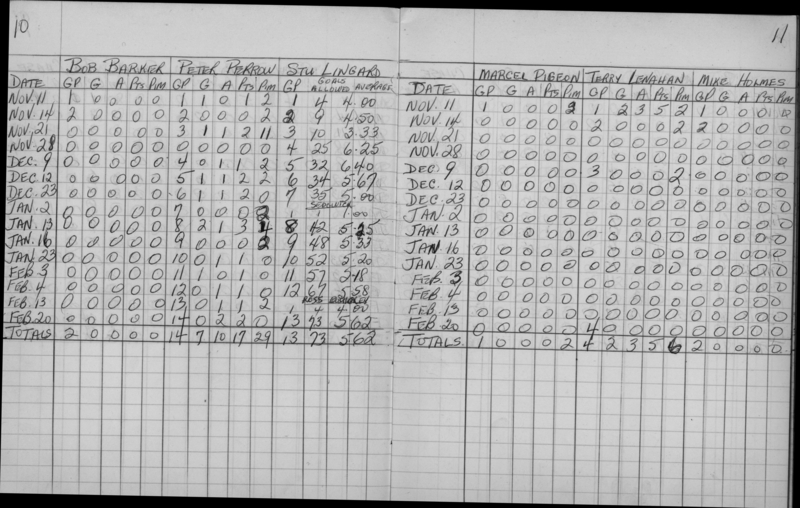 10
BOB BARKIER PETER PERROW STU LINGARD
GOALS
DATE GP G A Pts Pim GP G A Pts Pim GP ALLOWED AVERAGE
NOV. 11 1 0 0 0 0 1 1 0 1 2 1 4 4.00
NOV. 14 2 0 0 0 0 2 0 0 0 2 2 9 4.50
NOV. 21 0 0 0 0 0 3 1 1 2 11 3 10 3.33
NOV. 28 0 0 0 0 0 0 0 0 0 0 4 25 6.25
DEC. 9 0 0 0 0 0 4 0 1 1 2 5 32 6.40
DEC. 12 0 0 0 0 0 5 1 1 2 2 6 34 5.67
DEC. 23 0 0 0 0 0 6 1 1 2 0 7 35 5.00
JAN. 2 0 0 0 0 0 7 0 0 0 2 1 1 1.00
JAN. 13 0 0 0 0 0 8 2 1 3 4 8 42 5.25
JAN. 16 0 0 0 0 0 9 0 0 0 2 9 48 5.33
JAN. 23 0 0 0 0 0 10 0 1 1 0 10 52 5.20
FEB. 3 0 0 0 0 0 11 1 0 1 0 11 57 5.18
FEB. 4 0 0 0 0 0 12 0 1 1 0 12 67 5.58
ROSS
FEB. 13 0 0 0 0 0 13 0 1 1 2 1 4 4.00
FEB. 20 0 0 0 0 0 14 0 2 2 0 13 73 5.62
TOTALS 2 0 0 0 0 14 7 10 17 29 13 73 5.62
11
MARCEL PIGEON TERRY LENAHAN MIKE HOLMES
DATE GP G A Pts Pim GP G A Pts Pim GP G A Pts Pim
NOV. 11 1 0 0 0 2 1 2 3 5 2 1 0 0 0 0
NOV. 14 0 0 0 0 0 2 0 0 0 2 2 0 0 0 0
NOV. 21 0 0 0 0 0 0 0 0 0 0 0 0 0 0 0
NOV. 28 0 0 0 0 0 0 0 0 0 0 0 0 0 0 0
DEC. 9 0 0 0 0 0 3 0 0 0 2 0 0 0 0 0
DEC. 12 0 0 0 0 0 0 0 0 0 0 0 0 0 0 0
DEC. 23 0 0 0 0 0 0 0 0 0 0 0 0 0 0 0
JAN. 2 0 0 0 0 0 0 0 0 0 0 0 0 0 0 0
JAN. 13 0 0 0 0 0 0 0 0 0 0 0 0 0 0 0
JAN. 16 0 0 0 0 0 0 0 0 0 0 0 0 0 0 0
JAN. 23 0 0 0 0 0 0 0 0 0 0 0 0 0 0 0
FEB. 3 0 0 0 0 0 0 0 0 0 0 0 0 0 0 0
FEB. 4 0 0 0 0 0 0 0 0 0 0 0 0 0 0 0
FEB. 13 0 0 0 0 0 0 0 0 0 0 0 0 0 0 0
FEB. 20 0 0 0 0 0 4 0 0 0 0 0 0 0 0 0
TOTALS 1 0 0 0 2 4 2 3 5 6 2 0 0 0 0